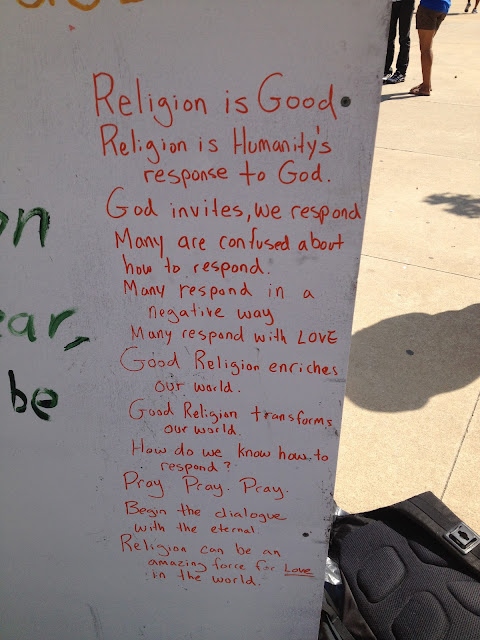 Religion is Good.
Religion is Humanity's
response to God.
God invites, we respond
Many are confused about
how to respond.
Many respond in a
negative way
Many respond with LOVE
Good Religion enriches
our world.
Good Religion transforms
our world.
How do we know how to
respond?
Pray Pray. Pray.
Begin the dialogue
with the eternal.
Religion can be an
amazing force for Love
in the world.
on
ear,
be